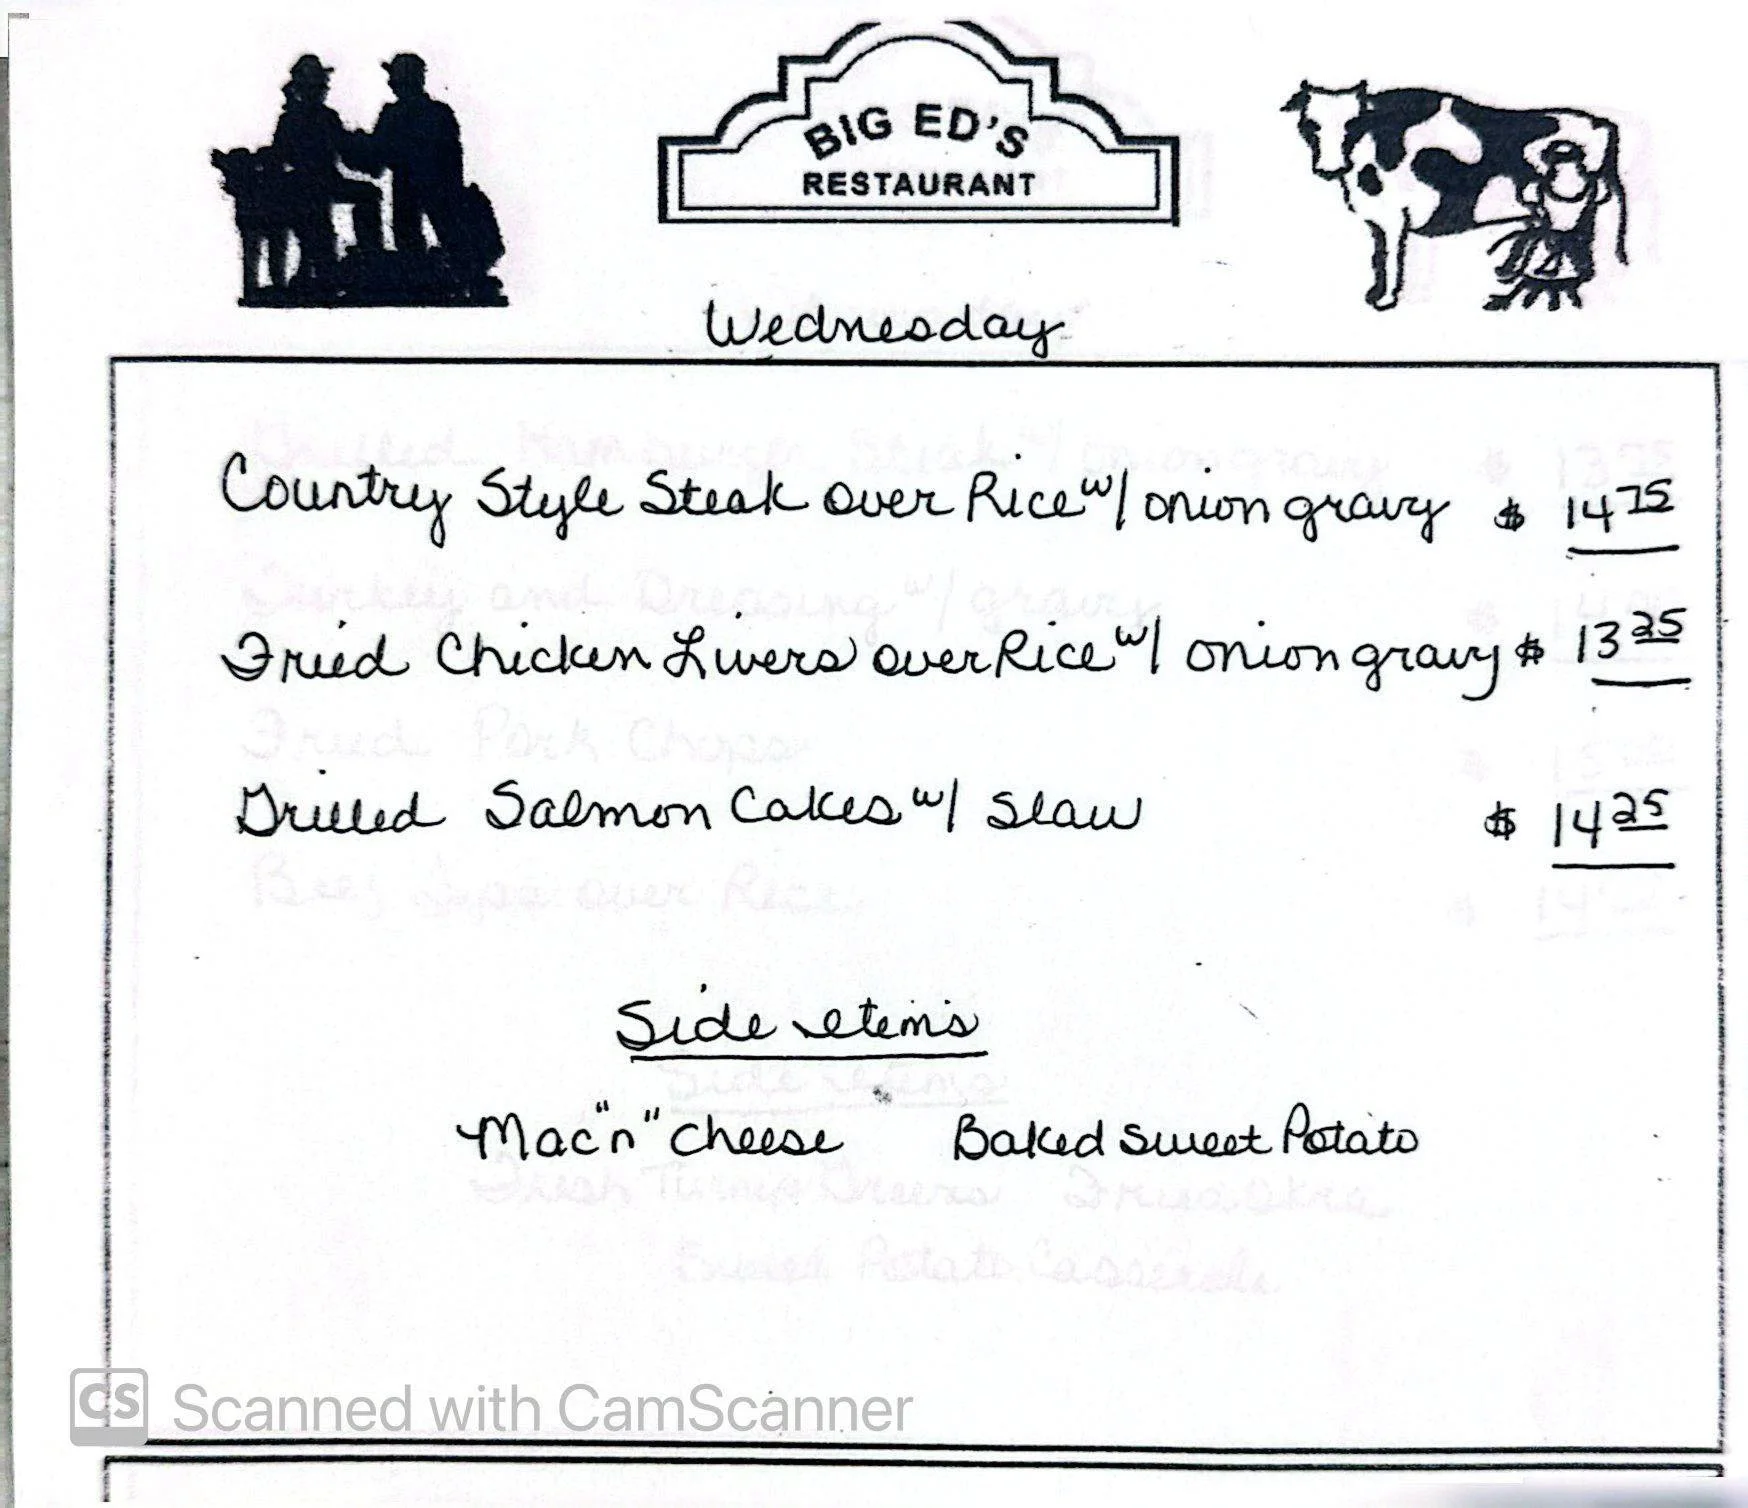 BIG ED'S
RESTAURANT
Wednesday
Country Style Steak over Rice w/ onion gravy $ 14.75
Fried Chicken Livers over Rice w/ onion gravy $ 13.25
Grilled Salmon Cakes w/ slaw $ 14.25
Side items
Mac "n" cheese Baked sweet Potato
CS Scanned with CamScanner